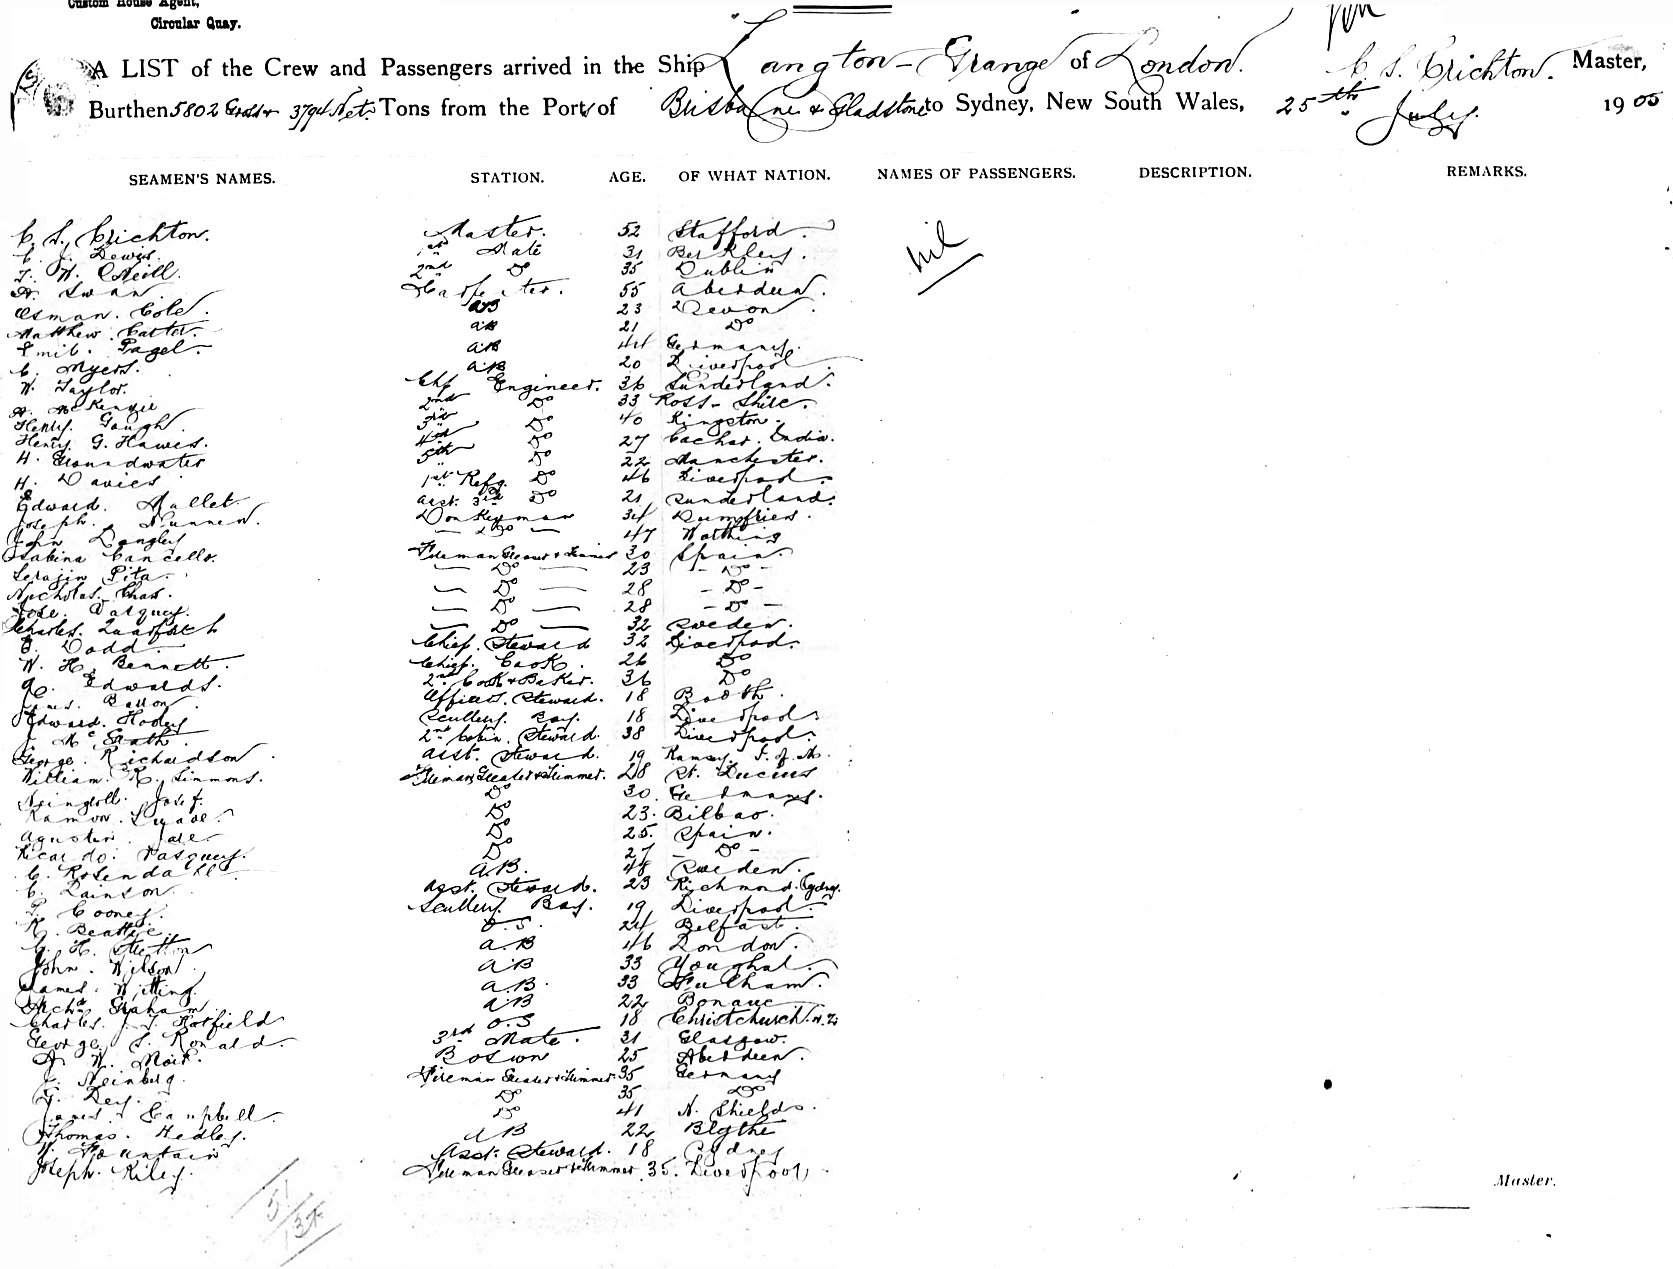 Custom House Agent,
Circular Quay.
A LIST of the Crew and Passengers arrived in the Ship Langton-Grange of London. C. S. Crichton. Master,
Burthen 5802 Gross & 3794 Net. Tons from the Port of Brisbane & Gladstone to Sydney, New South Wales, 25th July. 1905
SEAMEN'S NAMES. STATION. AGE. OF WHAT NATION. NAMES OF PASSENGERS. DESCRIPTION. REMARKS.
C. S. Crichton. Master. 52 Stafford. nil
C. J. Dewis. 1st Mate 31 Berkley.
T. W. O'Neill. 2nd Do 35 Dublin
A. Swan. Carpenter. 55 Aberdeen.
Osman. Cole. AB 23 Devon.
Matthew. Carter. AB 21 Do
Emil. Pagel. AB 44 Germany.
C. Myers. AB 20 Liverpool.
W. Taylor. Chf Engineer. 36 Sunderland.
A. McKenzie 2nd Do 33 Ross-Shire.
Henry. Gough. 3rd Do 40 Kingston.
Henry G. Hawes. 4th Do 27 Cachar. India.
H. Groundwater 5th Do 22 Manchester.
H. Davies 1st Refg. Do 46 Liverpool.
Edward. Mallet. Asst. 3rd Do 21 Sunderland.
Joseph. Donkeyman 34 Dumfries.
John Langley — Do — 47 Worthing
Sabina Cancello. Fireman Greaser & Trimmer 30 Spain.
Serafin Pita. — Do — 23 - Do -
Nicholas. Chas. — Do — 28 - Do -
Jose. Vasquez. — Do — 28 - Do -
Charles. — Do — 32 Sweden.
E. Dodd Chief. Steward 32 Liverpool.
W. H. Bennett. Chief. Cook. 26 Do
Edwards. 2nd Cook & Baker. 36 Do
James. Barron Officers. Steward. 18 Bootle.
Edward. Hooley Scullery. Boy. 18 Liverpool.
J. McGrath. 2nd Cabin. Steward. 38 Liverpool.
George. Richardson Asst. Steward. 19 Ramsey I. of M.
William. R. Simmons. Fireman Greaser & Trimmer. 28 St. Lucius
Josef. Do 30. Germany.
Ramon. Do 23. Bilbao.
Agustin. Do 25. Spain.
Ricardo. Vasquez. Do 27 - Do -
C. Rosendahl A.B. 48 Sweden.
C. Asst. Steward. 23 Richmond. Sydney.
Cooney. Scullery Boy. 19 Liverpool.
R. Beattie. O.S. 24 Belfast.
G. H. Stretton A.B 46 London.
John. Wilson AB 33 Youghal.
James. Witting. A.B. 33 Fulham.
Archd Graham AB 22 Bonawe
Charles. J. T. Hotfield O.S 18 Christchurch. N.Z.
George. S. Ronald. 3rd Mate. 31 Glasgow.
A. W. Moir. Bosun 25 Aberdeen.
J. Weinberg. Fireman Greaser & Trimmer. 35 Germany
Dey. Do 35 Do
James. Campbell Do 41 N. Shields.
Thomas. Hedley. AB 22 Blythe
W. Fountain Asst. Steward. 18 Sydney
Joseph. Riley. Fireman Greaser & Trimmer 35. Liverpool,
Master.